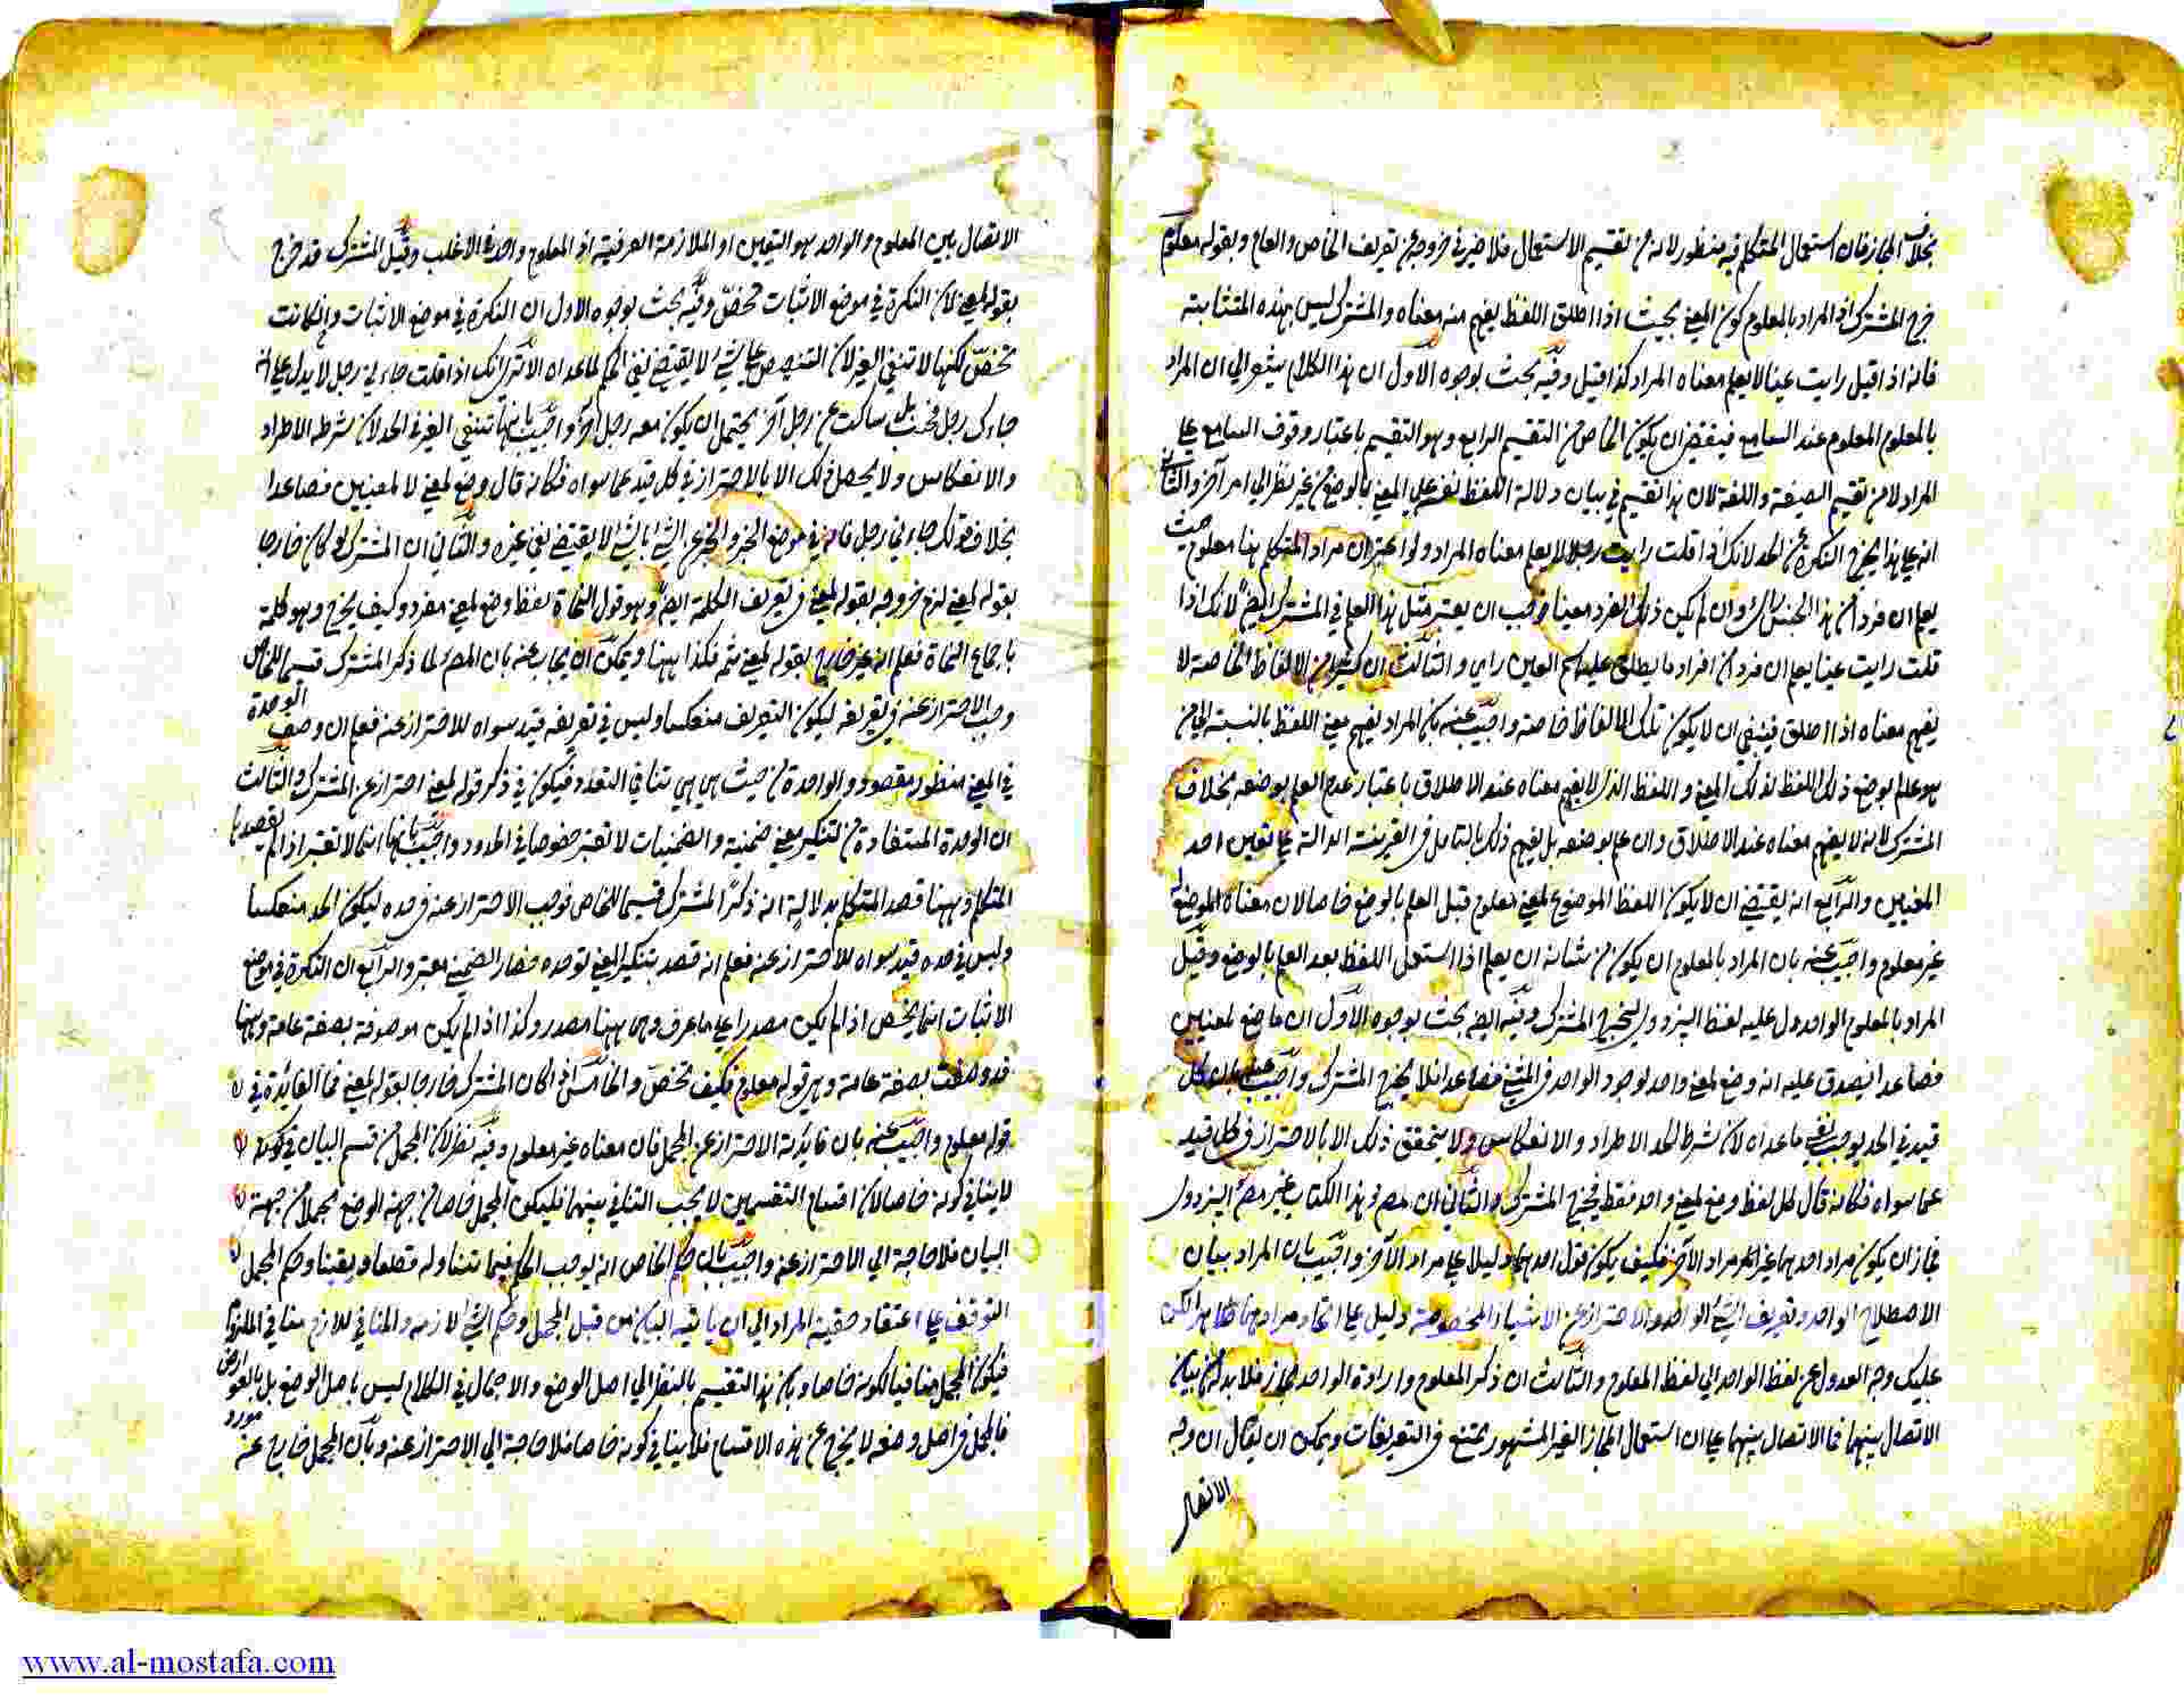 بخلاف المجاز فان استعمال المتكلم فيه منظور لانه من تقسيم الاستعمال فلا ضير في خروجه عن تعريف الخاص والعام وبقوله معلوم
خرج المشترك اذ المراد بالمعلوم كون المعنى بحيث اذا اطلق اللفظ يفهم منه معناه والمشترك ليس بهذه المثابة
فانه اذا قيل رايت عينا لا يعلم معناه المراد كذا قيل وفيه بحث بوجوه الاول ان هذا الكلام يشعر الى ان المراد
بالمعلوم المعلوم عند السامع فيقتضي ان يكون الخاص من التقسيم الرابع وهو التقسيم باعتبار وقوف السامع على
المراد لا من تقسيم الصيغة واللغة لان هذا تقسيم في بيان دلالة اللفظ نفسه على المعنى بالوضع من غير نظر الى امر آخر والثاني
انه على هذا يخرج النكرة عن الحد لانك اذا قلت رايت رجلا لا يعلم معناه المراد ولو اعتبر ان مراد المتكلم هنا معلوم حيث
يعلم ان فردا من هذا الجنس وان لم يكن ذلك الفرد معينا وجب ان يعتبر مثل هذا العلم في المشترك ايضا لانك اذا
قلت رايت عينا يعلم ان فردا من افراد ما يطلق عليه اسم العين راي والثالث ان كثيرا من الالفاظ الخاصة لا
يفهم معناه اذا اطلق فينبغي ان لا يكون تلك الالفاظ خاصة واجيب عنه بان المراد يفهم معنى اللفظ بالنسبة الى من
هو عالم بوضع ذلك اللفظ لذلك المعنى واللفظ الذي لا يفهم معناه عند الاطلاق باعتبار عدم العلم بوضعه بخلاف
المشترك لانه لا يفهم معناه عند الاطلاق وان علم بوضعه بل يفهم ذلك بالتامل في القرينة الدالة على تعين احد
المعنيين والرابع انه يقتضي ان لا يكون اللفظ الموضوع لمعنى معلوم قبل العلم بالوضع خاصا لان معناه الموضوع له
غير معلوم واجيب عنه بان المراد بالمعلوم ان يكون من شانه ان يعلم اذا استعمل اللفظ بعد العلم بالوضع وقيل
المراد بالمعلوم الواحد دل عليه لفظ البزدوي فيخرج المشترك وفيه ايضا بحث بوجوه الاول ان ما وضع لمعنيين
فصاعدا فيصدق عليه انه وضع لمعنى واحد لوجود الواحد في المعنيين فصاعدا فلا يخرج المشترك واجيب عنه بان كل
قيد في الحد يوجب نفي ما عداه لان شرط الحد الاطراد والانعكاس ولا يتحقق ذلك الا بالاحتراز في كل قيد
عما سواه فكانه قال كل لفظ وضع لمعنى واحد فقط فيخرج المشترك والثاني ان مص هذا الكتاب غير مص البزدوي
فجاز ان يكون مراد احدهما غير مراد الآخر فكيف يكون قول احدهما دليلا على مراد الآخر واجيب بان المراد بيان
الاصطلاح الواحد وتعريف الشئ الواحد والاحتراز عن الاشياء المخصوصة دليل على اتحاد مرادهما ظاهرا لكن
عليك وجه العدول عن لفظ الواحد الى لفظ المعلوم والثالث ان ذكر المعلوم وارادة الواحد مجاز فلا بد من بيان
الاتصال بينهما فما الاتصال بينهما على ان استعمال المجاز الغير المشهور يمتنع في التعريفات ويمكن ان يقال ان وجه
الاتصال
الاتصال بين المعلوم والواحد هو التعيين او الملازمة العرفية اذ المعلوم واحد في الاغلب وقيل المشترك قد خرج
بقوله لمعنى لان النكرة في موضع الاثبات تخص وفيه بحث بوجوه الاول ان النكرة في موضع الاثبات وان كانت
تخص لكنها لا تنفي الغير لان التنصيص على شئ لا يقتضي نفي الحكم لما عداه الا ترى انك اذا قلت جاءني رجل لا يدل على انه
جاءك رجل فحسب بل ساكت عن رجل آخر يحتمل ان يكون معه رجل آخر واجيب بانها تنفي الغير في الحد لان شرطه الاطراد
والانعكاس ولا يحصل ذلك الا بالاحتراز في كل قيد عما سواه فكانه قال وضع لمعنى لا لمعنيين فصاعدا
بخلاف قولك جاءني رجل فانه في موضع الخبر والخبر عن الشئ بالشئ لا يقتضي نفي غيره والثاني ان المشترك لو كان خارجا
بقوله لمعنى لزم خروجه بقوله لمعنى في تعريف الكلمة ايضا وهو قول النحاة لفظ وضع لمعنى مفرد وكيف يخرج وهو كلمة
باجماع النحاة فعلم انه غير خارج بقوله لمعنى ثم فكذا ههنا ويمكن ان يجاب عنه بان المص لما ذكر المشترك قسيما للخاص
وجب الاحتراز عنه في تعريفه ليكون التعريف منعكسا وليس في تعريفه قيد سواه للاحتراز عنه فعلم ان وصف الوحدة
في المعنى منظور مقصود والواحدة من حيث هي هي تنافي التعدد فيكون في ذكر قوله لمعنى احتراز عن المشترك والثالث
ان الوحدة المستفادة من التنكير معنى ضمنية والضمنيات لا تعتبر خصوصا في الحدود واجيب بانها انما لا تعتبر اذا لم يقصدها
المتكلم وههنا قصد المتكلم بدلالة انه ذكر المشترك قسيما للخاص فوجب الاحتراز عنه في حده ليكون الحد منعكسا
وليس في حده قيد سواه للاحتراز عنه فعلم انه قصد بتنكير المعنى توحده فصار الضمني معتبرا والرابع ان النكرة في موضع
الاثبات انما يخص اذا لم يكن مصدرا على ما عرف وهي ههنا مصدر وكذا اذا لم يكن موصوفة بصفة عامة وههنا
قد وصفت بصفة عامة وهي قوله معلوم فكيف تخص والخامس اذا كان المشترك خارجا بقوله لمعنى فما الفائدة في
قوله معلوم واجيب عنه بان فائدته الاحتراز عن المجمل فان معناه غير معلوم وفيه نظر لان المجمل من قسم البيان في كونه
لا ينافي كونه خاصا لان اقسام التقسيمين لا يجب التنافي بينهما فليكون المجمل خاصا من جهة الوضع مجملا من جهة
البيان فلا حاجة الى الاحتراز عنه واجيب بان حكم الخاص انه يوجب الحكم فيما تناوله قطعا ويقينا وحكم المجمل
التوقف على اعتقاد حقية المراد الى ان ياتيه البيان من قبل المجمل وحكم الشئ لازمه والمنافي للازم مناف للملزوم
فيكون المجمل منافيا لكونه خاصا وبان هذا التقسيم بالنظر الى اصل الوضع والاجمال في الكلام ليس باصل الوضع بل بالعوارض
فالمجمل في اصل وضعه لا يخرج عن هذه الاقسام فلا ينافي كونه خاصا فلا حاجة الى الاحتراز عنه وبان المجمل خارج عن مورد
www.al-mostafa.com